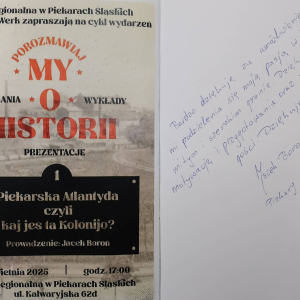 egionalna w Piekarach Śląskich
Werk zapraszają na cykl wydarzeń
POROZMAWIAJ
MY
ANIA WYKŁADY
O
HISTORII
PREZENTACJE
1
Piekarska Atlantyda
czyli
kaj jest ta Kolonijo?
Prowadzenie: Jacek Boroń
ietnia 2025 godz. 17:00
Regionalna w Piekarach Śląskich
ul. Kalwaryjska 62d
Bardzo dziękuję za umożliwienie
mi podzielenia się moją pasją w
tym wesołym gronie
motywację i przygotowania oraz
gości